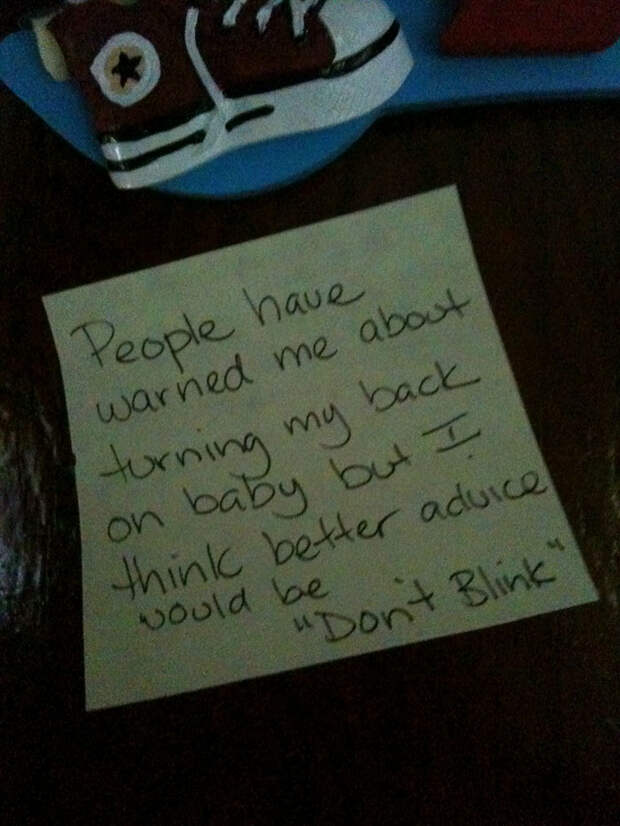 People have
warned me about
turning my back
on baby but I
think better advice
would be
"Don't Blink"